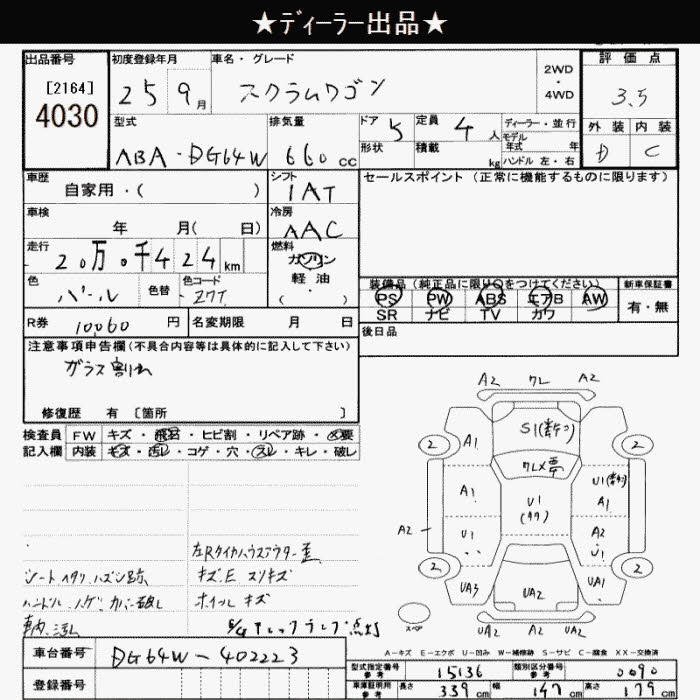 ★ディーラー出品★
出品番号
[2164]
4030
初度登録年月
25 9月
車名・グレード
スクラムワゴン
2WD
・
4WD
評価点
3.5
外装 内装
D C
型式
ABA-DG64W
排気量
660 cc
ドア 5
形状
定員 4人
積載 kg
ディーラー・並行
モデル年式 年
ハンドル 左・右
車歴
自家用・( )
シフト
IAT
セールスポイント(正常に機能するものに限ります)
車検
年 月( 日)
冷房
AAC
走行
20万0千424 km
燃料
ガソリン
軽油
・
( )
色
パール
色替
色コード
Z7T
装備品(純正品に限り○をつけてください)
PS PW ABS エアB AW
SR ナビ TV カワ
新車保証書
有・無
R券 10060 円
名変期限 月 日
後日品
注意事項申告欄(不具合内容等は具体的に記入して下さい)
ガラス割れ
修復歴 有 〔箇所 〕
検査員
記入欄
FW キズ・飛石・ヒビ割・リペア跡・✕要
内装 キズ・汚レ・コゲ・穴・スレ・キレ・破レ
シートヘタリ、ハズシ跡
車内汚れ
キズ.E スリキズ
ホイル キズ
A2 クレ A2
2 A1 2
A1 U1 A1
A2 U1 A2 U1
2 UA3 UA2 UA1 2
スペア
UA2 A2 UA2
A-キズ E-エクボ U-凹み W-補修跡 S-サビ C-腐食 XX-交換済
車台番号 DG64W-402223
登録番号
型式指定番号
参考
15136
類別区分番号
参考
0090
車庫証明用
参考
長さ 339 cm 幅 147 cm 高さ 179 cm